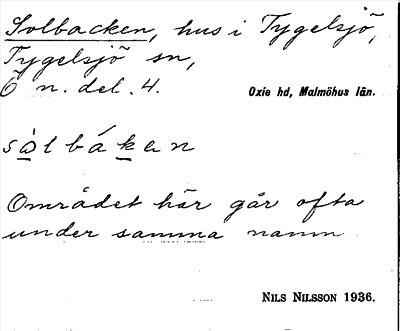 Solbacken, hus i Tygelsjö,
Tygelsjö sn,
Ö n. del. 4.
Oxie hd, Malmöhus län.
sòlbákan
Området här går ofta
under samma namn
NILS NILSSON 1936.